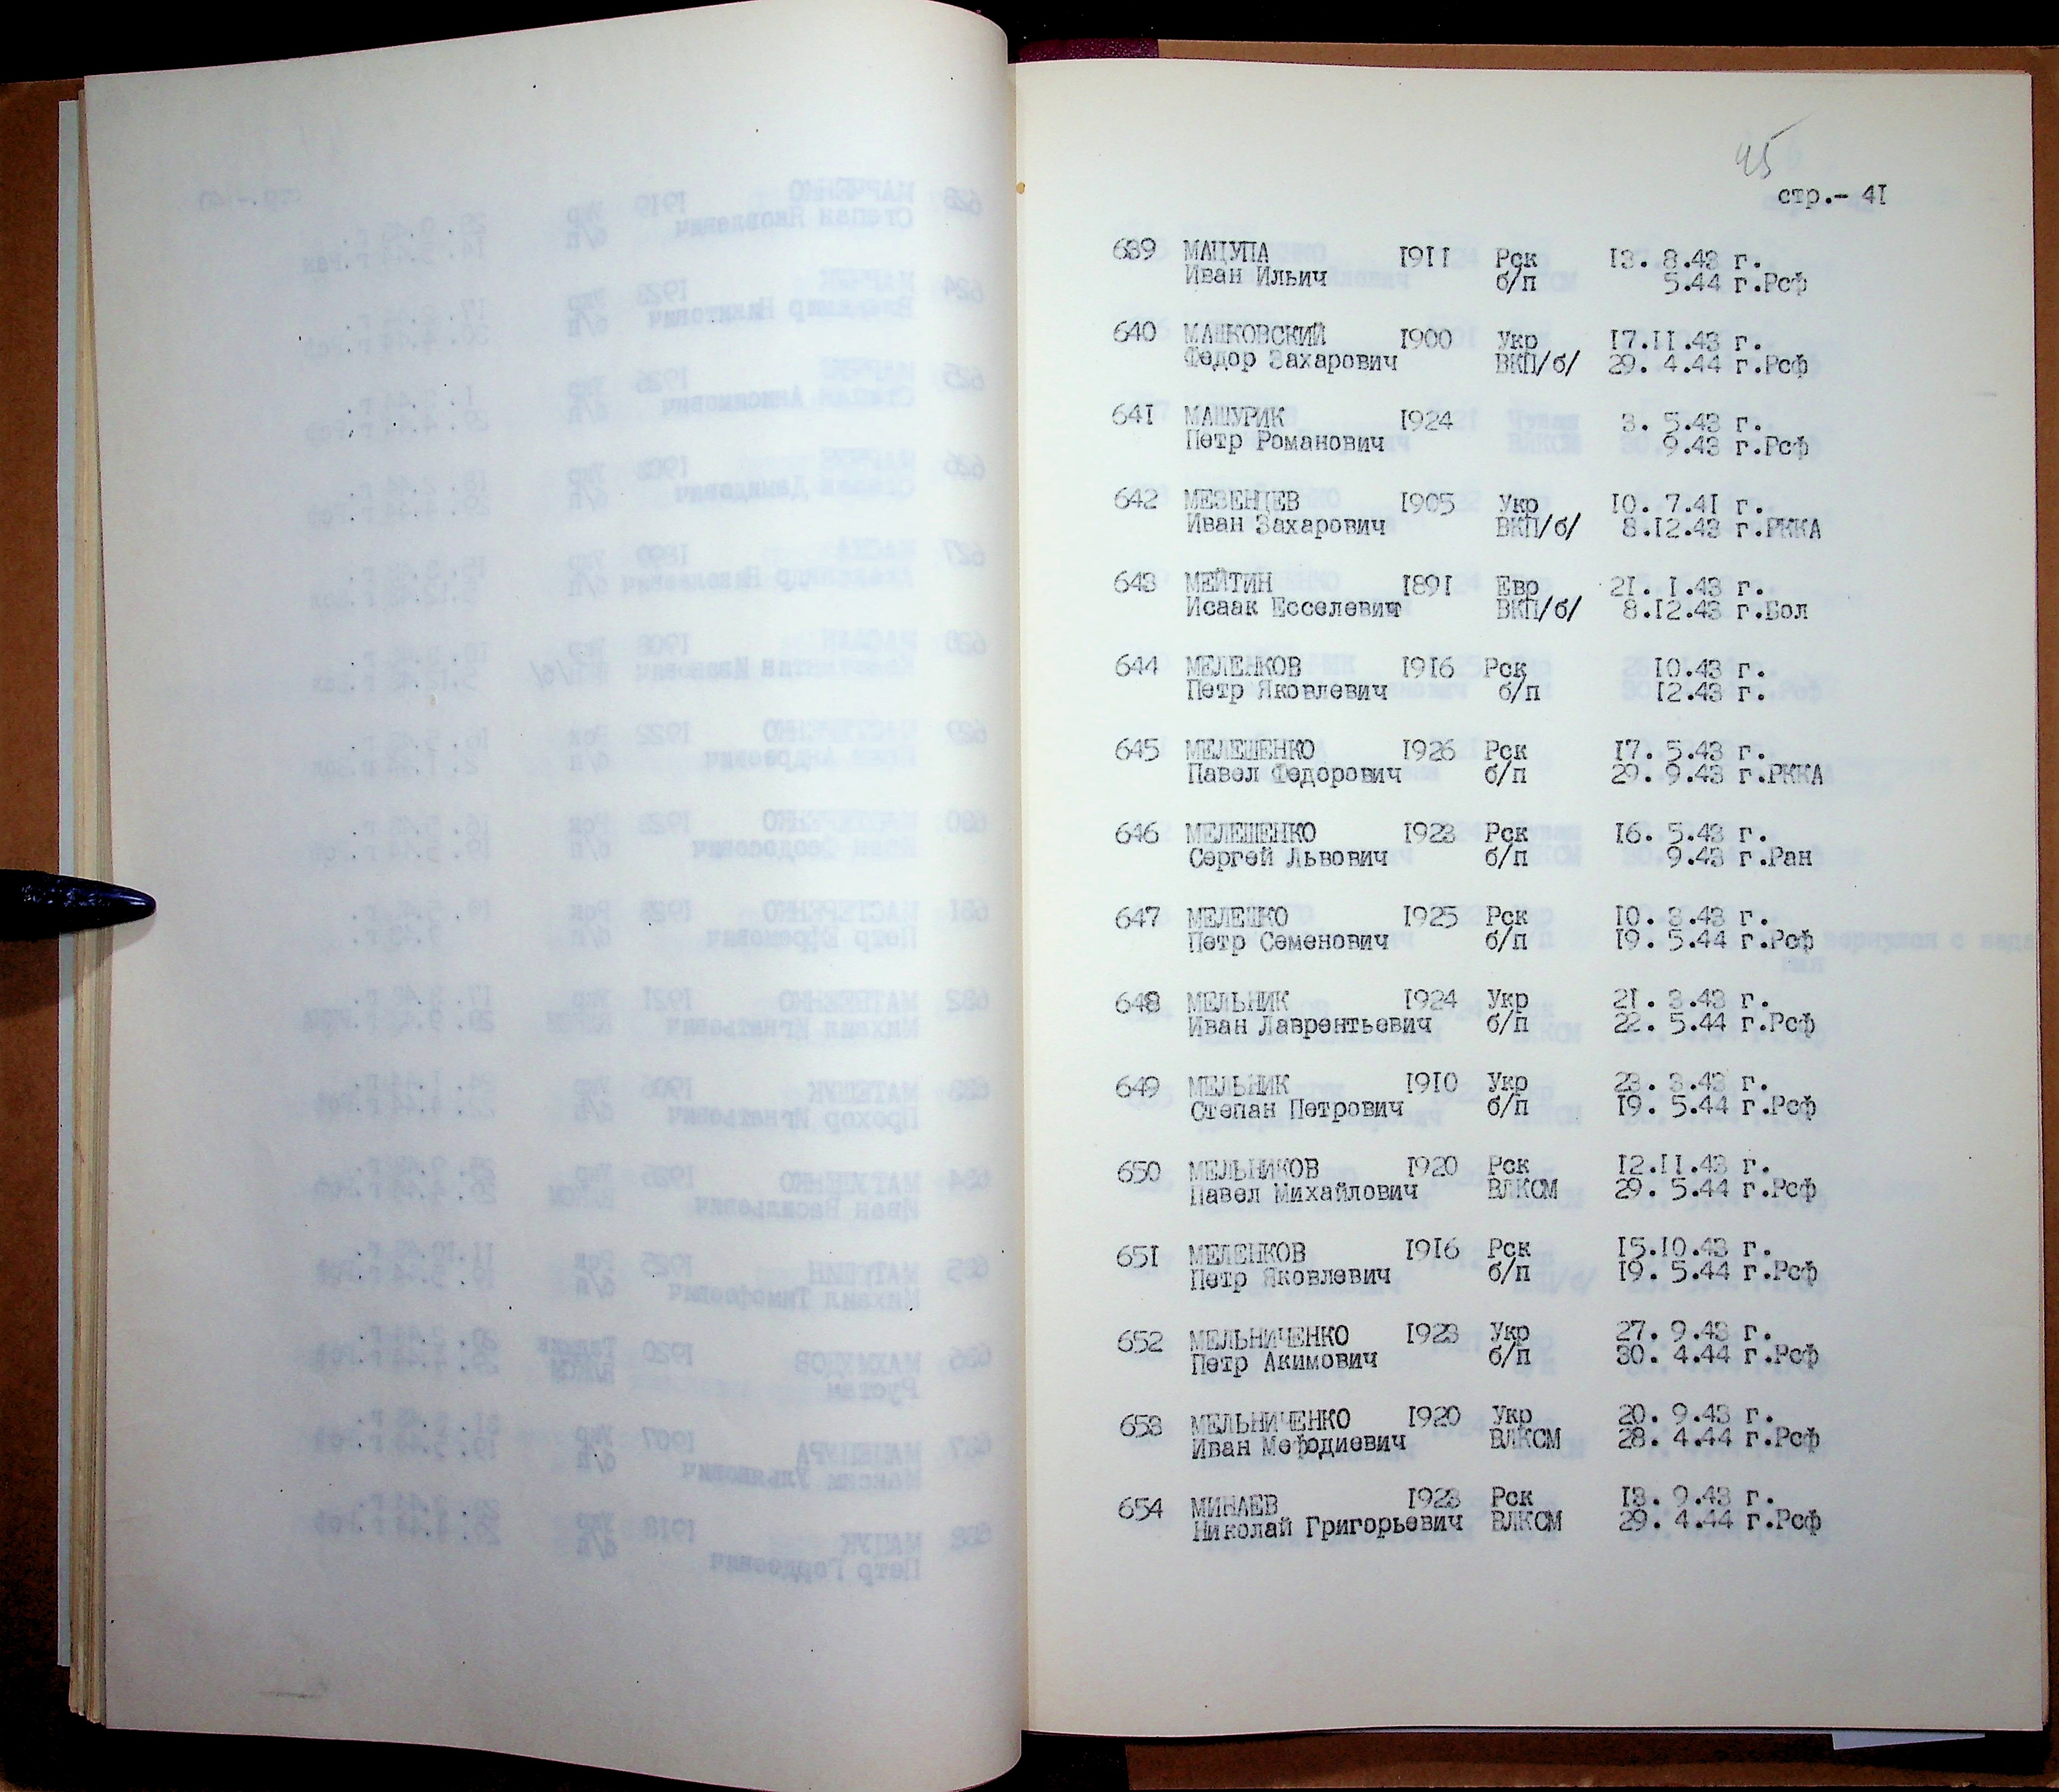 45
стр.- 41
639 МАЦУПА 1911 Рск 13. 8.43 г.
Иван Ильич б/п 5.44 г.Рсф
640 МАШКОВСКИЙ 1900 Укр 17.11.43 г.
Федор Захарович ВКП/б/ 29. 4.44 г.Рсф
641 МАШУРИК 1924 3. 5.43 г.
Петр Романович 9.43 г.Рсф
642 МЕЗЕНЦЕВ 1905 Укр 10. 7.41 г.
Иван Захарович ВКП/б/ 8.12.43 г.РККА
643 МЕЙТИН 1891 Евр 21. 1.43 г.
Исаак Есселевич ВКП/б/ 8.12.43 г.Бол
644 МЕЛЕНКОВ 1916 Рск 10.43 г.
Петр Яковлевич б/п 12.43 г.
645 МЕЛЕШЕНКО 1926 Рск 17. 5.43 г.
Павел Федорович б/п 29. 9.43 г.РККА
646 МЕЛЕШЕНКО 1923 Рск 16. 5.43 г.
Сергей Львович б/п 9.43 г.Ран
647 МЕЛЕШКО 1925 Рск 10. 3.43 г.
Петр Семенович б/п 19. 5.44 г.Рсф
648 МЕЛЬНИК 1924 Укр 21. 3.43 г.
Иван Лаврентьевич б/п 22. 5.44 г.Рсф
649 МЕЛЬНИК 1910 Укр 23. 3.43 г.
Степан Петрович б/п 19. 5.44 г.Рсф
650 МЕЛЬНИКОВ 1920 Рск 12.11.43 г.
Павел Михайлович ВЛКСМ 29. 5.44 г.Рсф
651 МЕЛЕНКОВ 1916 Рск 15.10.43 г.
Петр Яковлевич б/п 19. 5.44 г.Рсф
652 МЕЛЬНИЧЕНКО 1923 Укр 27. 9.43 г.
Петр Акимович б/п 30. 4.44 г.Рсф
653 МЕЛЬНИЧЕНКО 1920 Укр 20. 9.43 г.
Иван Мефодиевич ВЛКСМ 28. 4.44 г.Рсф
654 МИНАЕВ 1923 Рск 13. 9.43 г.
Николай Григорьевич ВЛКСМ 29. 4.44 г.Рсф